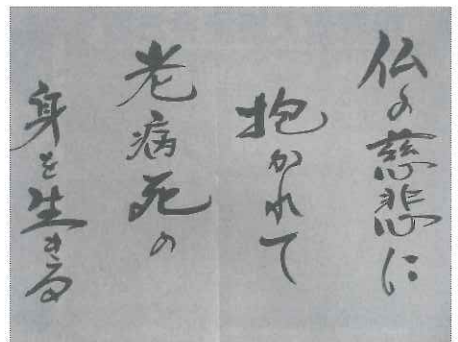 仏の慈悲に
抱かれて
老病死の
身を生きる